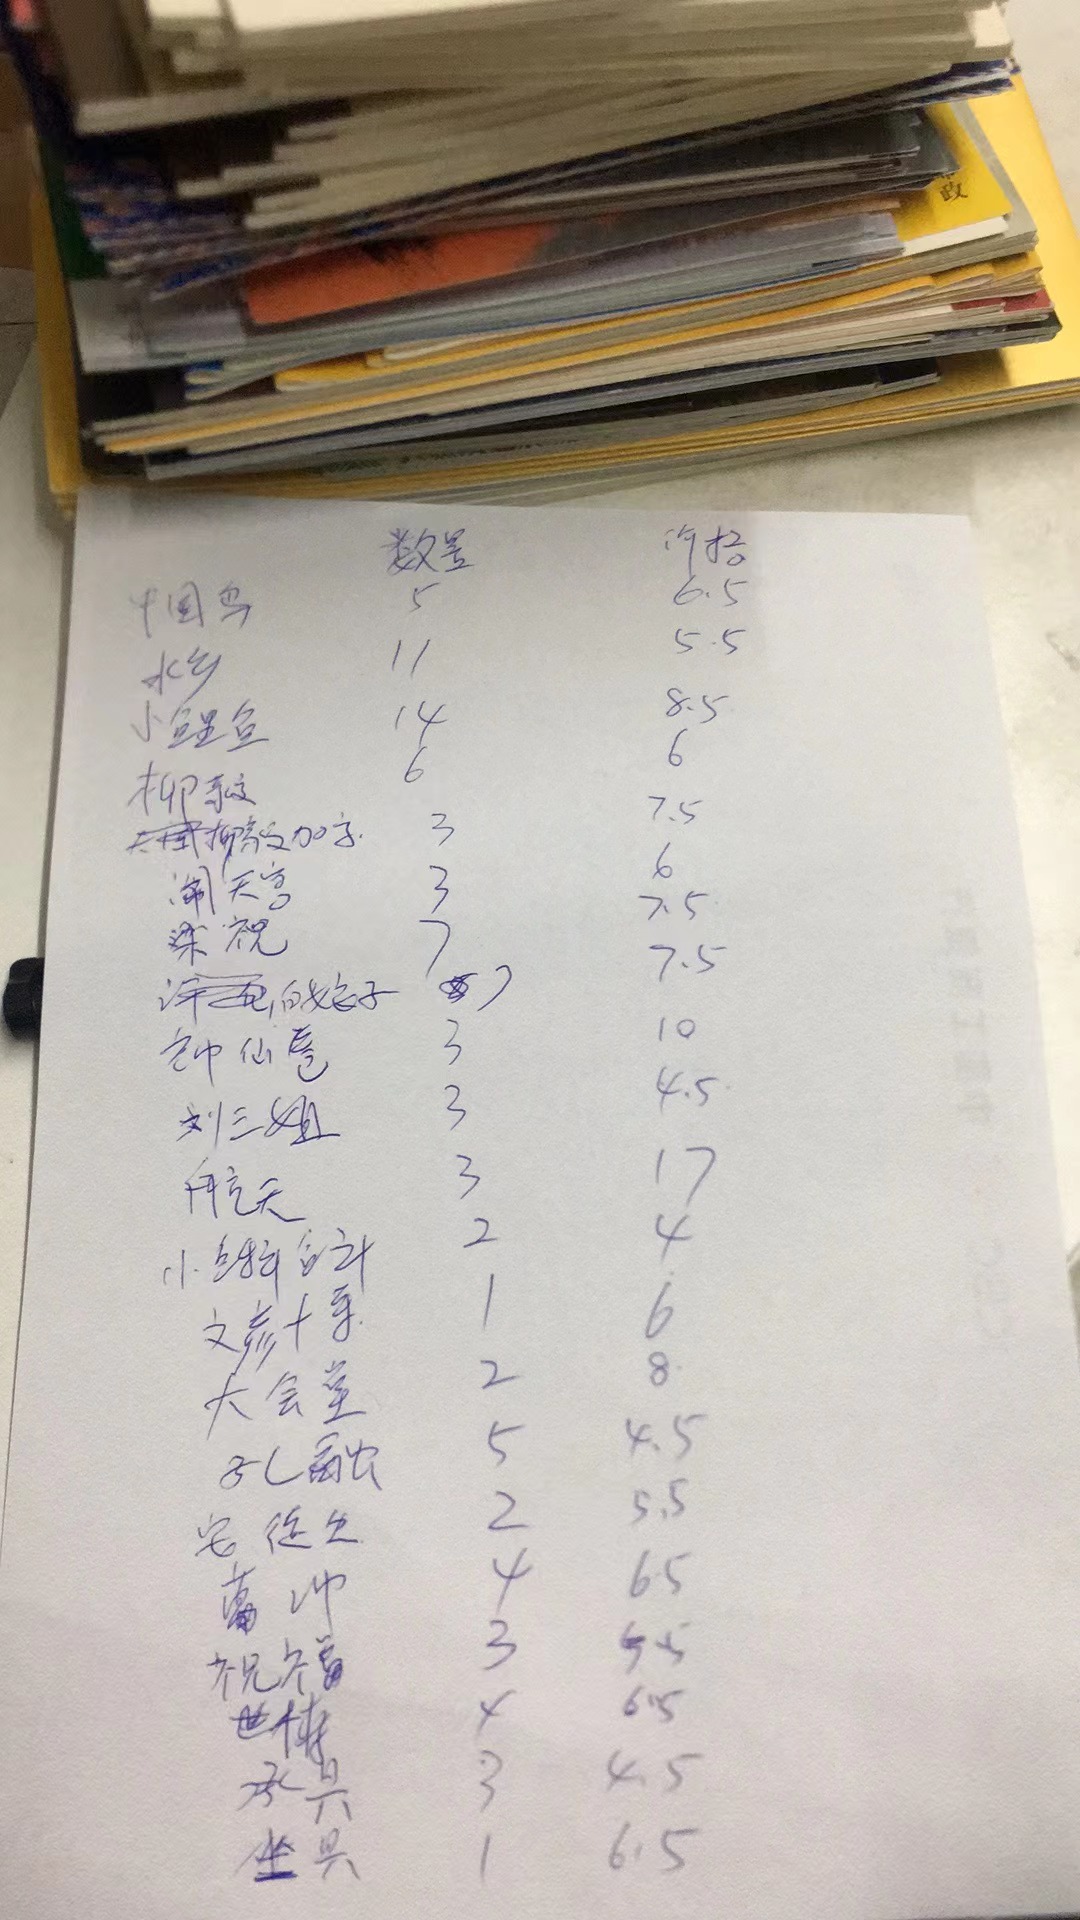 政
数量 价格
中国鸟 5 6.5
水乡 11 5.5
小鲤鱼 14 8.5
柳毅 6 6
柳毅加字 3 7.5
闹天宫 3 6
梁祝 7 7.5
白娘子 7 7.5
神仙卷 3 10
刘三姐 3 4.5
航天 3 17
小 2 4
文彦十 1 6
大会堂 2 8
孔融 5 4.5
宅 2 5.5
3
祝福 3 5.5
世博 4 6.5
承具 3 4.5
坐具 1 6.5